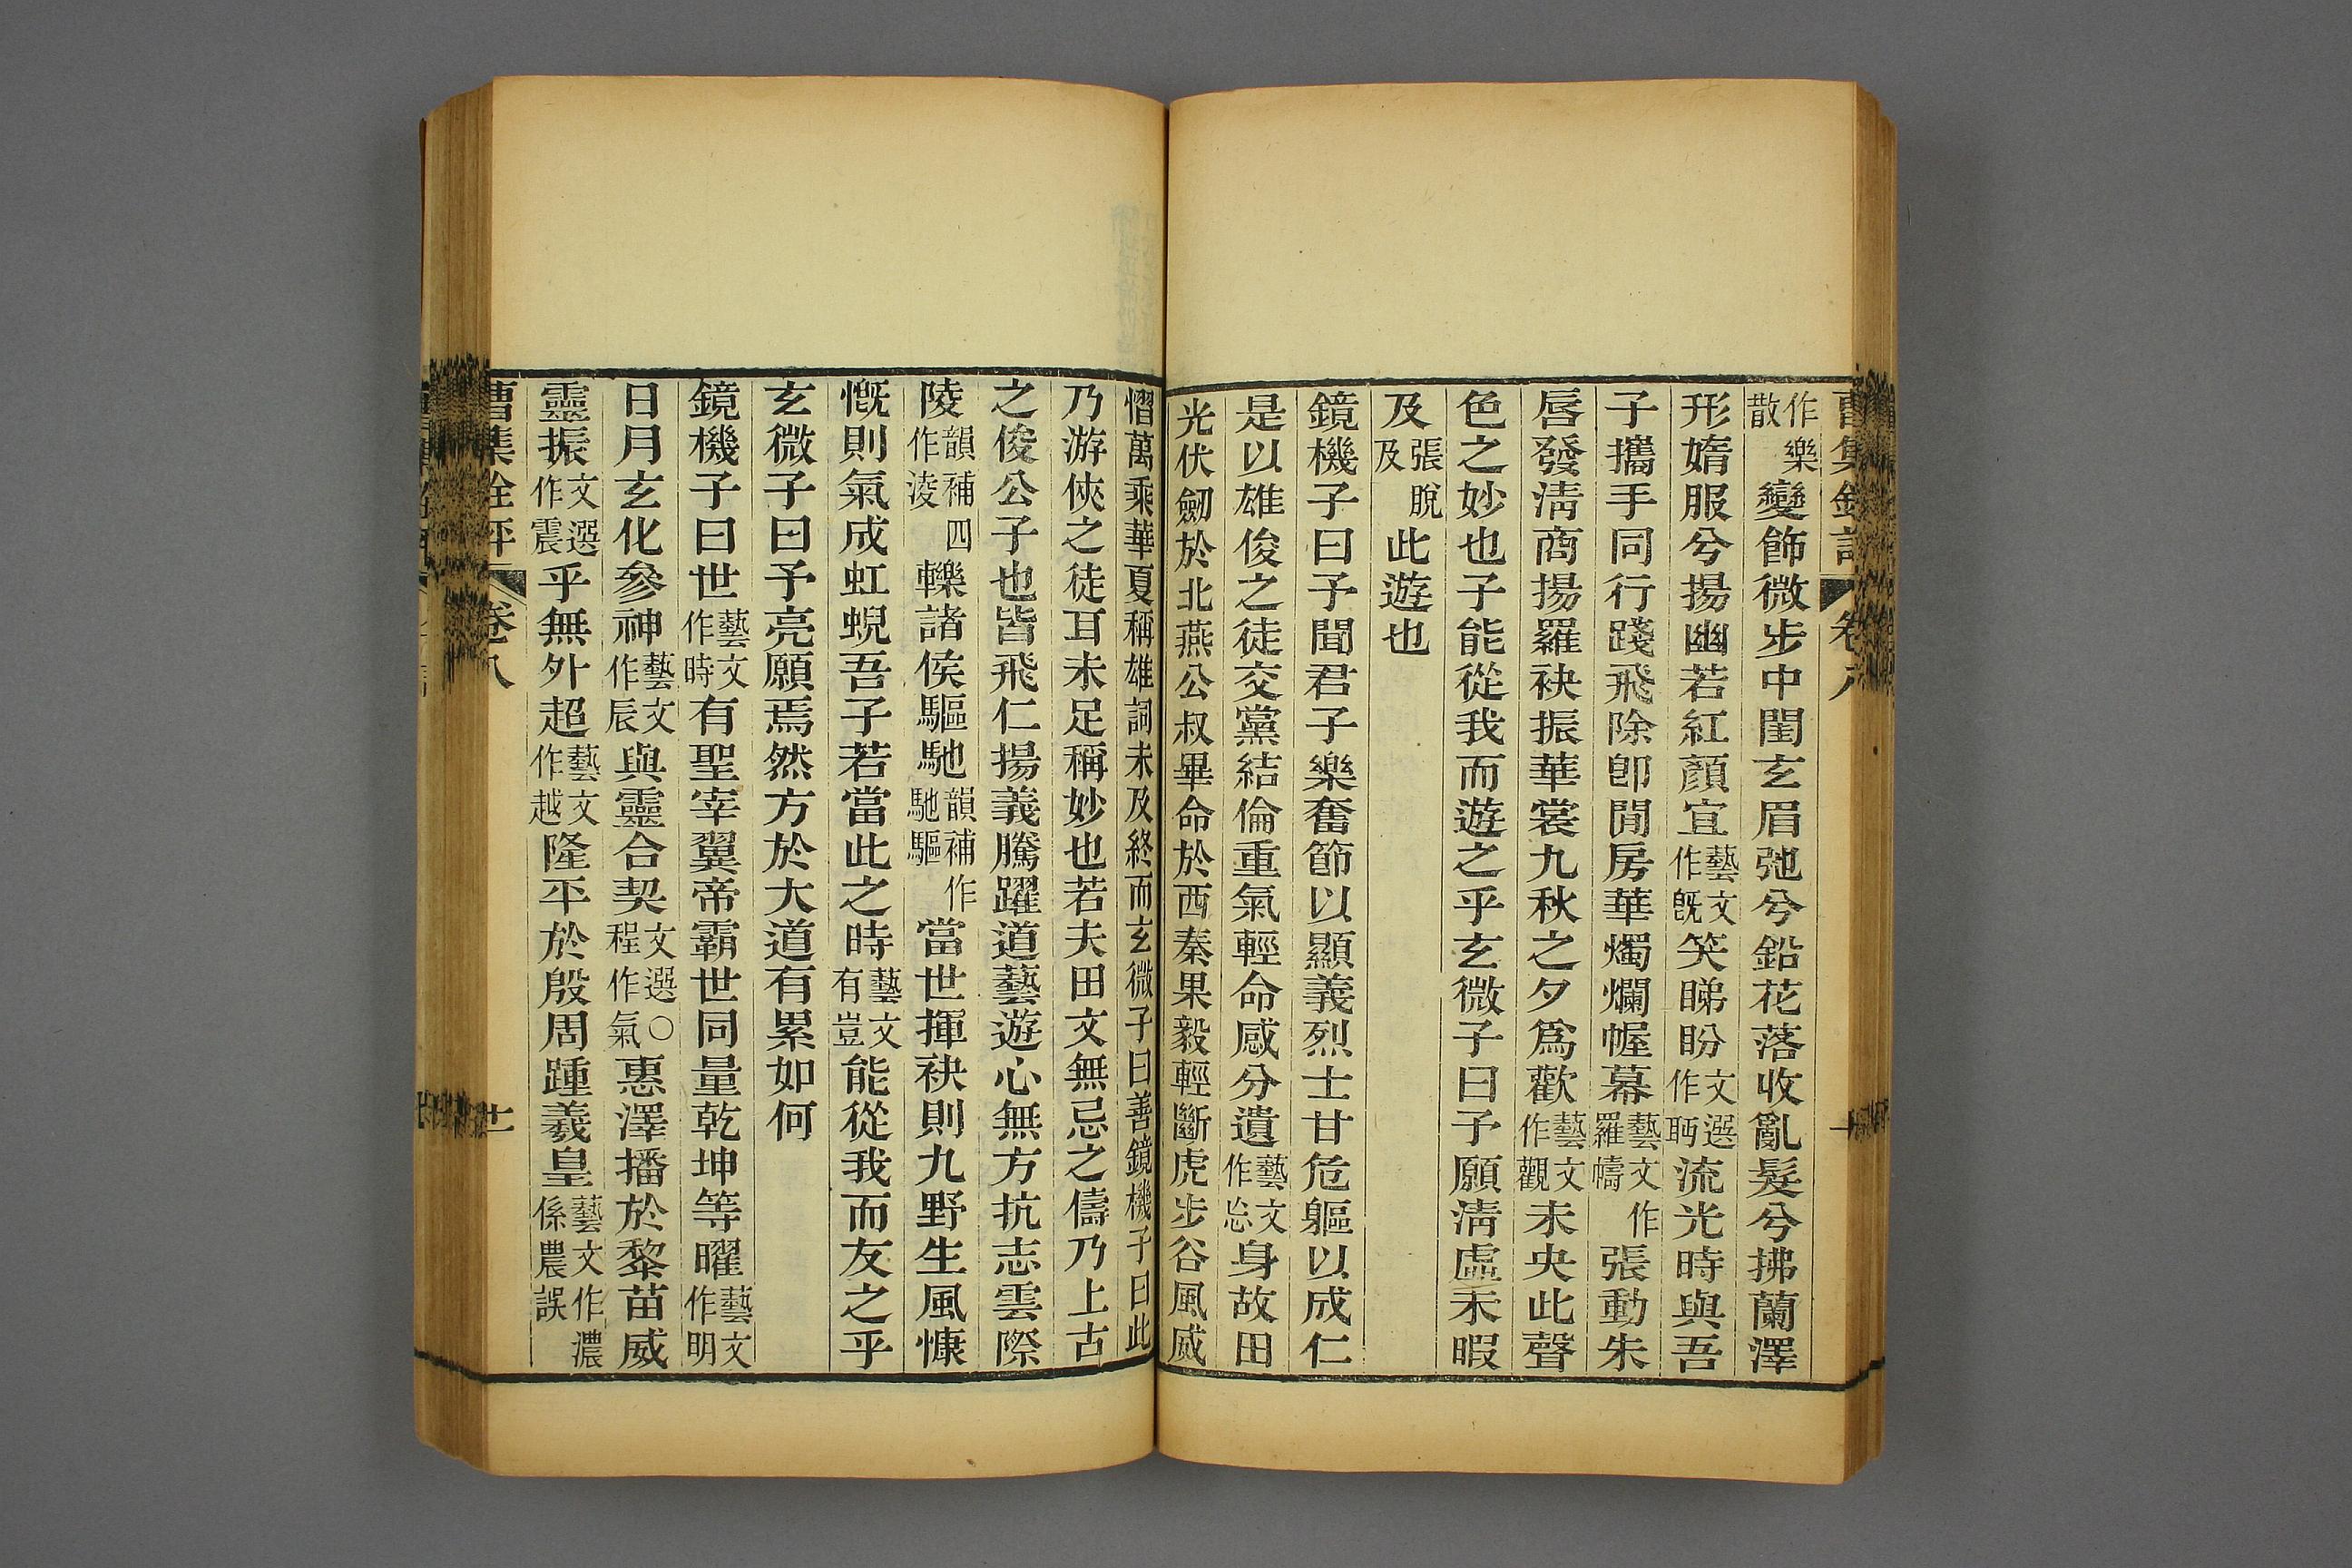 曹集銓評 卷八
作樂散變飾微步中閨玄眉弛兮鉛花落收亂髮兮拂蘭澤
形媠服兮揚幽若紅顏宜藝文作旣笑睇盼文選作眄流光時與吾
子攜手同行踐飛除卽閒房華燭爛幄幕藝文作羅幬張動朱
唇發淸商揚羅袂振華裳九秋之夕爲歡藝文作觀未央此聲
色之妙也子能從我而遊之乎玄微子曰予願淸虛未暇
及張脫及及此遊也
鏡機子曰予聞君子樂奮節以顯義烈士甘危軀以成仁
是以雄俊之徒交黨結倫重氣輕命感分遺藝文作忩身故田
光伏劒於北燕公叔畢命於西秦果毅輕斷虎步谷風威
慴萬乘華夏稱雄詞未及終而玄微子曰善鏡機子曰此
乃游俠之徒耳未足稱妙也若夫田文無忌之儔乃上古
之俊公子也皆飛仁揚義騰躍道藝遊心無方抗志雲際
陵韻補四作淩轢諸侯驅馳韻補作馳驅當世揮袂則九野生風慷
慨則氣成虹蜺吾子若當此之時藝文有豈能從我而友之乎
玄微子曰予亮願焉然方於大道有累如何
鏡機子曰世藝文作時有聖宰翼帝霸世同量乾坤等曜藝文作明
日月玄化參神藝文作辰與靈合契文選〇程作氣惠澤播於黎苗威
靈振文選作震乎無外超藝文作越隆平於殷周踵羲皇藝文作濃係農誤
曹集銓評 卷八 十一